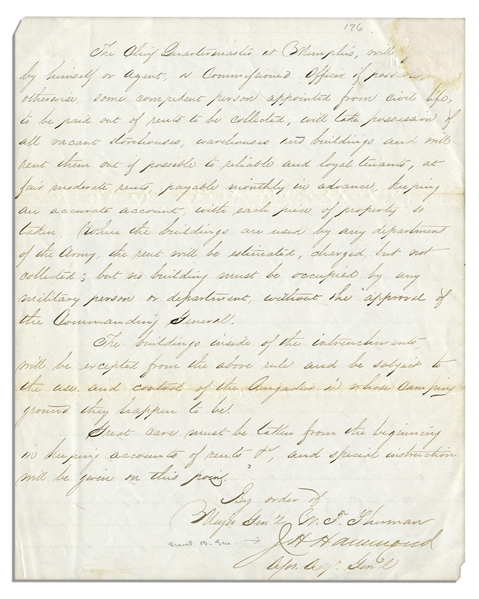 176
The Chief Quartermaster at Memphis, will
by himself or Agent, a Commissioned Officer if possible
otherwise some competent person appointed from civil life,
to be paid out of rents to be collected, will take possession of
all vacant storehouses, warehouses and buildings and will
rent them out if possible to reliable and loyal tenants, at
fair moderate rents, payable monthly in advance, keeping
an accurate account, with each piece of property so
taken. Where the buildings are used by any department
of the Army, the rent will be estimated, charged but not
collected; but no building must be occupied by any
military person or department, without the approval of
the Commanding General.
The buildings inside of the intrenchments
will be excepted from the above rule and be subject to
the use and control of the Brigadier in whose camping
ground they happen to be.
Great care must be taken from the beginning
in keeping accounts of rents &c, and special instruction
will be given on this point."
By order of
Major Gen'l W. T. Sherman
J H Hammond
Ass. Adj. Gen'l